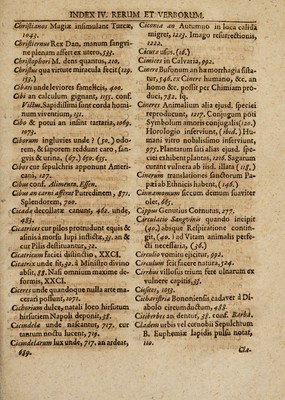 INDEX IV. RERUM ET VERBORUM.
Christianos Magiæ insimulant Turcæ,
1043.
Christiernus Rex Dan. manum sangvi-
ne plenam assert ex utero, 533.
Christophori M. dens quantus, 210.
Christus qua virtute miracula fecit (129.
152.)
Cibati unde leviores famelicis, 400.
Cibi an calculum gignant, 1055. conf.
Victus. Sapidissimi sunt corda homi-
num viventium, 131.
Cibo & potui an insint tartaria, 1069.
1073.
Ciborum ingluvies unde? (50.) odo-
rem, & saporem reddunt caro, san-
gvis & urina, (67.) 650. 655.
Cibos cur sepulchris apponunt Ameri-
cani, 107.
Cibus conf. Alimento, Essen.
Cibus an carni asserat Putredinem, 871.
Splendorem, 700.
Cicada decollatæ canunt, 462. unde,
483.
Cicatrices cur pilos protrudunt equis &
asinis à morsu lupi inflictæ, 33. an &
cur Pilis destituantur, 32.
Cicatricum faciei distinctio, XXCI.
Cicatrix unde fit, 32. à Ministro divino
abfit, 88. Nasi omnium maxime de-
formis, XXCI.
Ciceres unde quandoque nulla arte ma-
cerari possunt, 1071.
Cichorium dulce, natali loco hirsutum
hirsutiem Napoli deponit, 58.
Cicindela unde nascantur, 717. cur
tantum noctu lucent, 719.
Cicindelarum lux unde, 717. an ardeat,
689.
Ciconia an Autumno in loca calida
migret, 1223. Imago resurrectionis,
1222.
Cicuta usus. (26.)
Cimices in Calvaria, 992.
Cinere Bufonum an hæmorrhagia sista-
tur, 746. ex Cinere humano, &c. an
homo &c. possit per Chimiam pro-
duci, 792. 52.
Cineres Animalium alia ejusd. speciei
reproducunt, 1217. Conjugum poti
Symbolum amoris conjugalis (120.)
Horologio inserviunt, (ibid.) Hu-
mani vitro nobilissimo inserviunt,
977. Plantarum sui alias ejusd. spe-
ciei exhibent plantas, 1216. Sagarum
curant vulnera ab iisd. illata (118.)
Cinerum translationes sanctorum Pa-
pæi ab Ethnicis habent, (146.)
Cinnamomum siccum demum suaviter
olet, 665.
Cippus Genutius Cornutus, 277.
Circulatio Sangvinis quando incipit
(40.) absque Respiratione contin-
git, (40.) ad Vitam animalis perfe-
cti necessaria, (36.)
Circulis vomitu ejicitur, 992.
Circulum scit facere natura, 524.
Cirrhus villosus trium fere ulnarum ex
vulnere capitis, 35.
Cistoses, 1053.
Citharistria Bononiensis cadaver à Di-
abolo circumductum, 488.
Citiberbes an dentur, 35. conf. Barba.
Cladem urbis vel cœnobii Sepulchrum
B. Euphemiæ lapidis pulsu notat,
110.
Cla-